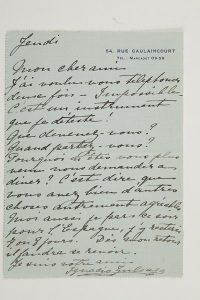 54, RUE CAULAINCOURT
TEL. : MARCADET 09-58
Jeudi
Mon cher ami
J'ai voulu vous téléphoner
deux fois - Impossible
C'est un instrument
que je déteste !
Que devenez-vous ?
Quand partez-vous ?
Pourquoi n'êtes vous plus
venu nous demander à
diner ? C'est dire que
vous avez bien d'autres
choses autrement agréables
Moi aussi je pars ce soir
pour l'Espagne, j'y resterai
7 ou 8 jours. Dès mon retour
il faudra se revoir.
Je suis votre ami
Ignacio Zuloaga